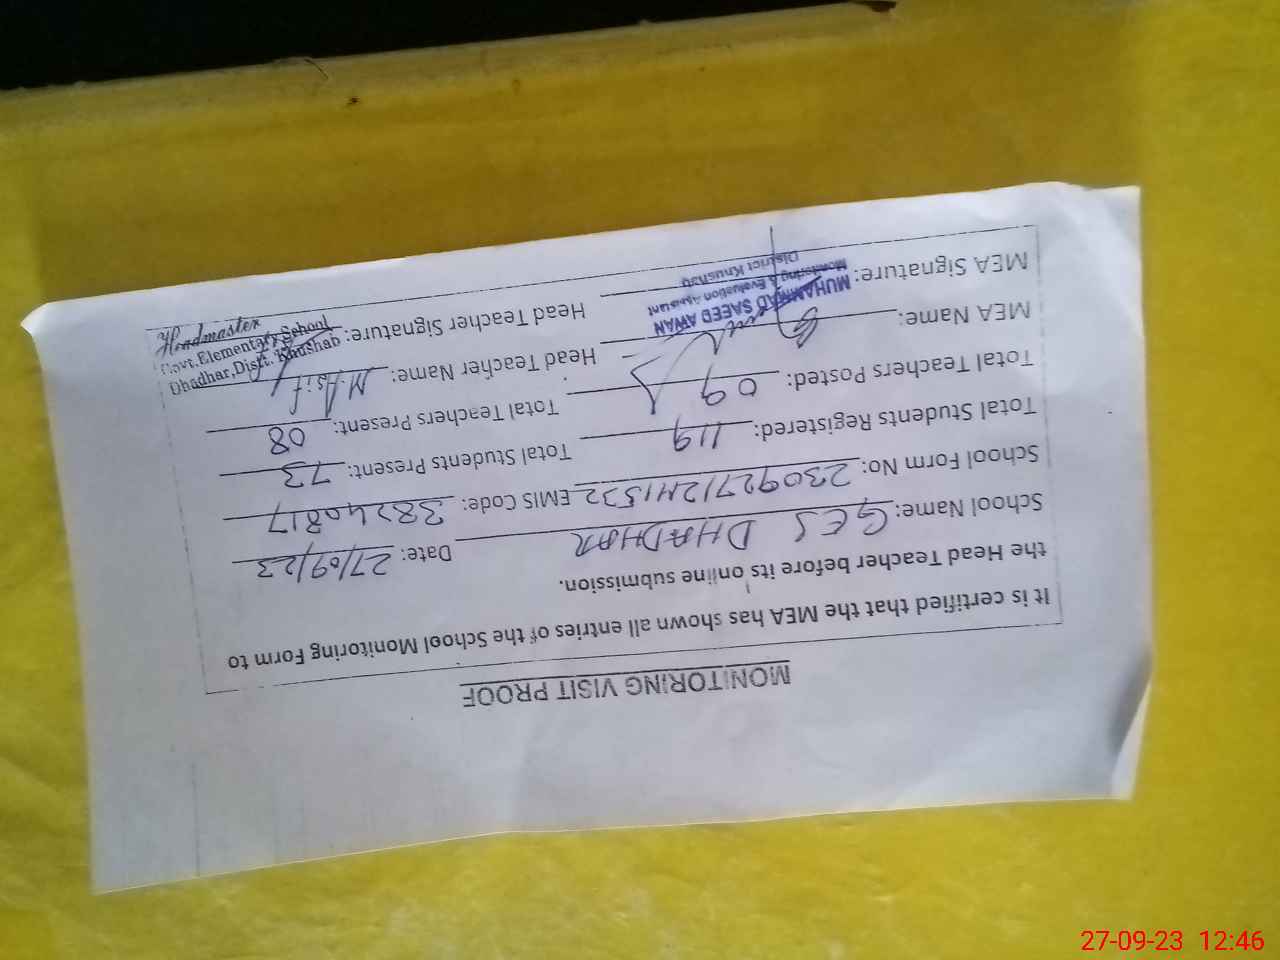 MONITORING VISIT PROOF
It is certified that the MEA has shown all entries of the School Monitoring Form to
the Head Teacher before its online submission.
School Name: GES DHADHAR Date: 27/09/23
School Form No: 230927/241532 EMIS Code: 38240817
Total Students Registered: 119 Total Students Present: 73
Total Teachers Posted: 09 Total Teachers Present: 08
MEA Name: Head Teacher Name: M. Asif
MEA Signature: Head Teacher Signature:
MUHAMMAD SAEED AWAN
Monitoring & Evaluation Assistant
District Khushab
Headmaster
Govt. Elementary School
Dhadhar, Distt. Khushab
27-09-23 12:46